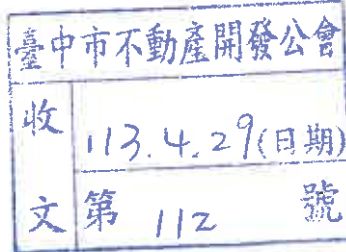 臺中市不動產開發公會
收文
113.4.29(日期)
第 112 號